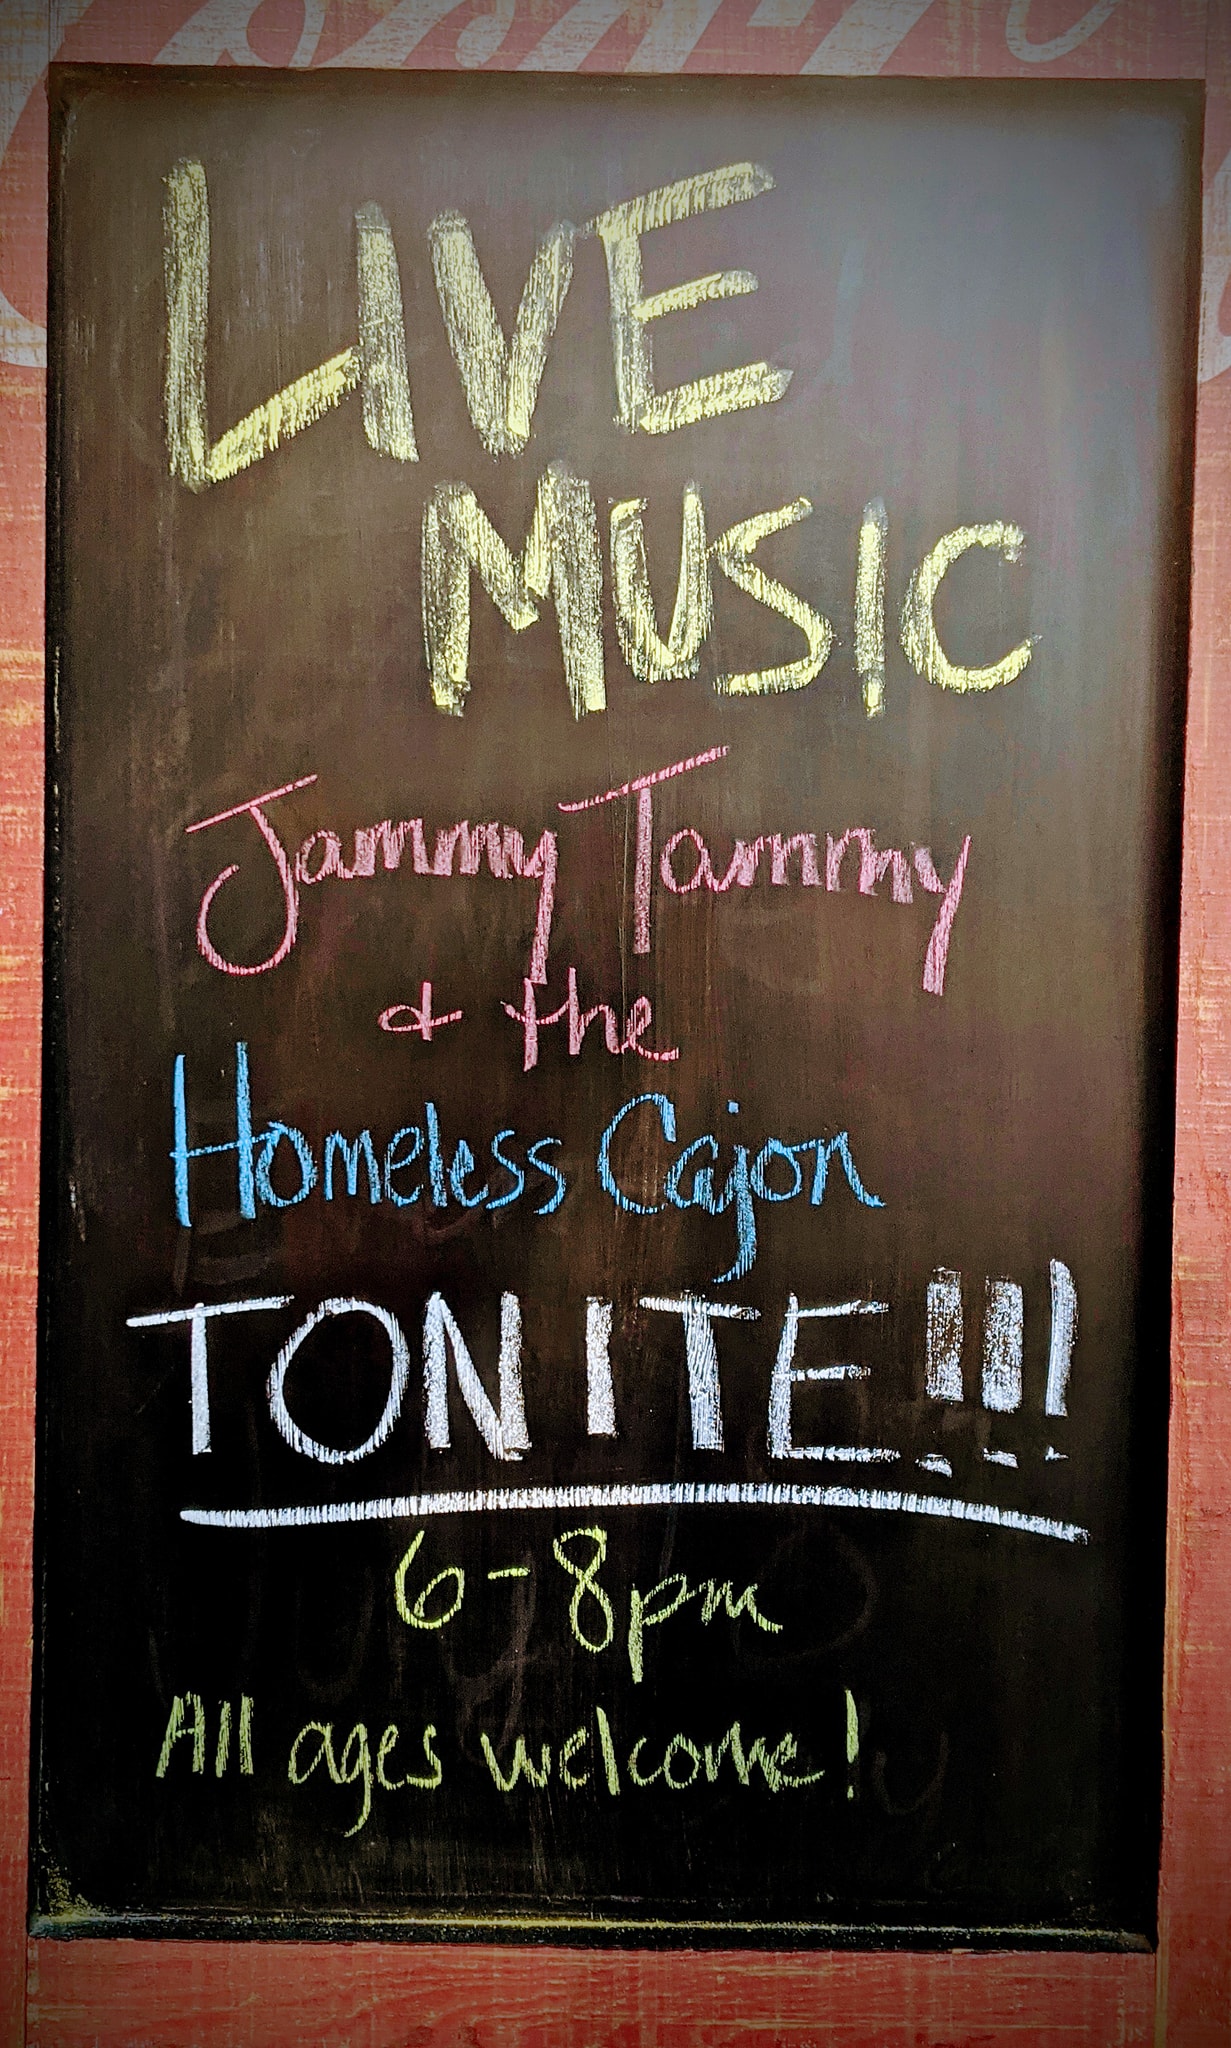 LIVE
MUSIC
Jammy Tammy
& the
Homeless Cajon
TONITE!!!
6-8pm
All ages welcome!